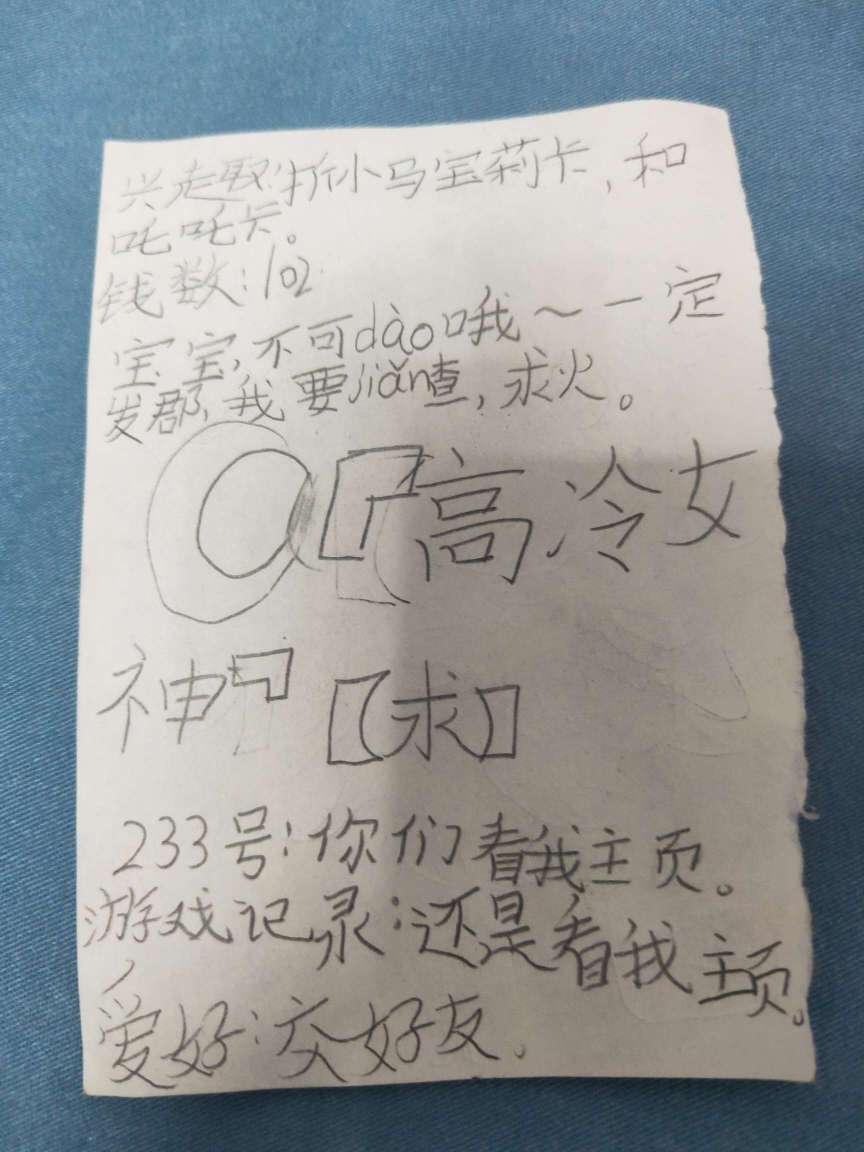 兴趣:拆小马宝莉卡,和
吒吒卡。
钱数:102
宝宝,不可dào哦~一定
发郡,我要jiǎn查,求火。
高冷女
神 【求】
233号:你们看我主页。
游戏记录:还是看我主页。
爱好:交好友。